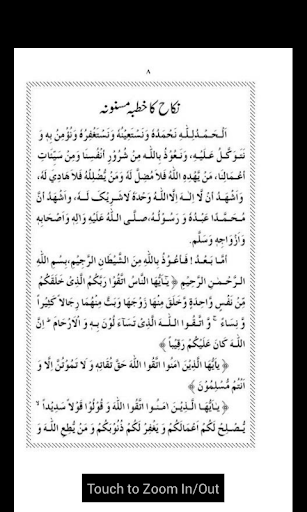 ۸
نکاح کا خطبہ مسنونہ
اَلْحَمْدُلِلّٰہِ نَحْمَدُہٗ وَنَسْتَعِیْنُہٗ وَنَسْتَغْفِرُہٗ وَنُؤْمِنُ بِہٖ وَ
نَتَوَکَّلُ عَلَیْہِ، وَنَعُوْذُ بِاللّٰہِ مِنْ شُرُوْرِ اَنْفُسِنَا وَمِنْ سَیِّئَاتِ
اَعْمَالِنَا، مَنْ یَّھْدِہِ اللّٰہُ فَلَا مُضِلَّ لَہٗ وَمَنْ یُّضْلِلْہُ فَلَا ھَادِیَ لَہٗ،
وَاَشْھَدُ اَنْ لَّا اِلٰہَ اِلَّا اللّٰہُ وَحْدَہٗ لَاشَرِیْکَ لَہٗ، وَاَشْھَدُ اَنَّ
مُحَمَّدًا عَبْدُہٗ وَ رَسُوْلُہٗ، صَلَّی اللّٰہُ عَلَیْہِ وَاٰلِہٖ وَاَصْحَابِہٖ
وَاَزْوَاجِہٖ وَسَلَّمَ۔
اَمَّا بَعْدُ! فَاَعُوْذُ بِاللّٰہِ مِنَ الشَّیْطَانِ الرَّجِیْمِ، بِسْمِ اللّٰہِ
الرَّحْمٰنِ الرَّحِیْمِ ﴿یٰٓاَیُّھَا النَّاسُ اتَّقُوْا رَبَّکُمُ الَّذِیْ خَلَقَکُمْ
مِّنْ نَّفْسٍ وَّاحِدَةٍ وَّخَلَقَ مِنْھَا زَوْجَھَا وَبَثَّ مِنْھُمَا رِجَالًا کَثِیْرًا
وَّ نِسَآءً ۚ وَ اتَّقُوا اللّٰہَ الَّذِیْ تَسَآءَ لُوْنَ بِہٖ وَ الْاَرْحَامَ ؕ اِنَّ
اللّٰہَ کَانَ عَلَیْکُمْ رَقِیْبًا﴾
﴿یٰٓاَیُّھَا الَّذِیْنَ اٰمَنُوا اتَّقُوا اللّٰہَ حَقَّ تُقَاتِہٖ وَ لَا تَمُوْتُنَّ اِلَّا وَ
اَنْتُمْ مُّسْلِمُوْنَ﴾
﴿یٰٓاَیُّھَا الَّذِیْنَ اٰمَنُوا اتَّقُوا اللّٰہَ وَ قُوْلُوْا قَوْلًا سَدِیْدًا ۙ
یُّصْلِحْ لَکُمْ اَعْمَالَکُمْ وَ یَغْفِرْ لَکُمْ ذُنُوْبَکُمْ وَ مَنْ یُّطِعِ اللّٰہَ وَ
Touch to Zoom In/Out